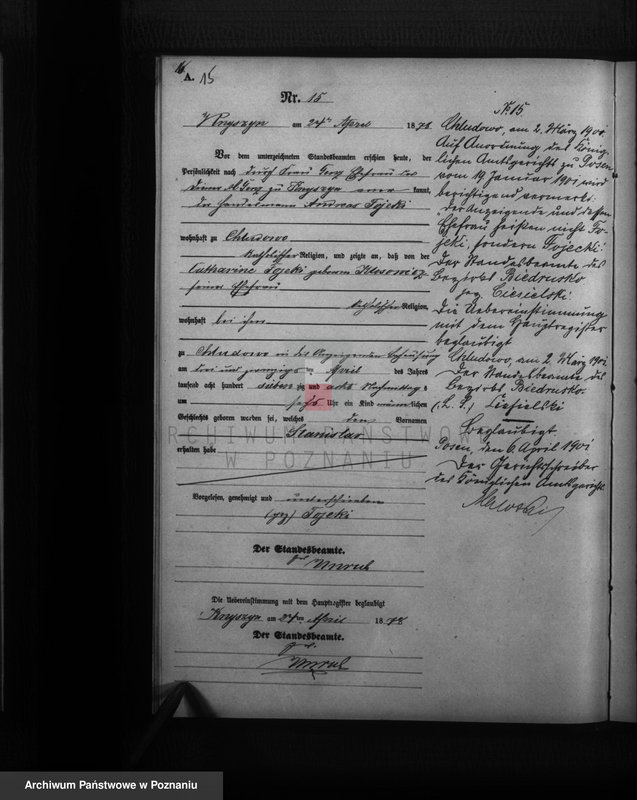 A. 15
Nr. 15
am 24ten April 1878
Vor dem unterzeichneten Standesbeamten erschien heute, der
Persönlichkeit nach durch Frau
kannt,
der Handelmann Andreas Tojecki
wohnhaft zu Chludowo
katholischer Religion, und zeigte an, daß von der
Catharine Tojecki geborenen
seiner Ehefrau
katholischer Religion,
wohnhaft bei ihm
zu Chludowo in des Anzeigenden Behausung
am drei und zwanzigsten April des Jahres
tausend acht hundert sieben zig und acht Nachmittag s
um sechs Uhr ein Kind männlichen
Geschlechts geboren worden sei, welches den Vornamen
Stanislav
erhalten habe
Vorgelesen, genehmigt und unterschrieben
(gez) Tojecki
Der Standesbeamte.
gez. Unruh
Die Uebereinstimmung mit dem Hauptregister beglaubigt
am 24ten April 1878
Der Standesbeamte.
gez.
Unruh
No 15
Chludowo, am 2. März 1901
Auf Anordnung des König-
lichen Amtsgerichts zu Posen
vom 19 Januar 1901 wird
berichtigend vermerkt:
der Anzeigende und dessen
Ehefrau heißen nicht To-
jecki, sondern Fojecki
Der Standesbeamte des
Bezirks Biedrusko
gez. Ciesielski
Die Uebereinstimmung
mit dem Hauptregister
beglaubigt
Chludowo, am 2. März 1901
Der Standesbeamte des
Bezirks Biedrusko
(L. S.) Ciesielski
Beglaubigt.
Posen, den 6. April 1901
Der Gerichtsschreiber
des Königlichen Amtsgerichts.
ARCHIWUM PAŃSTWOWE
W POZNANIU
Archiwum Państwowe w Poznaniu